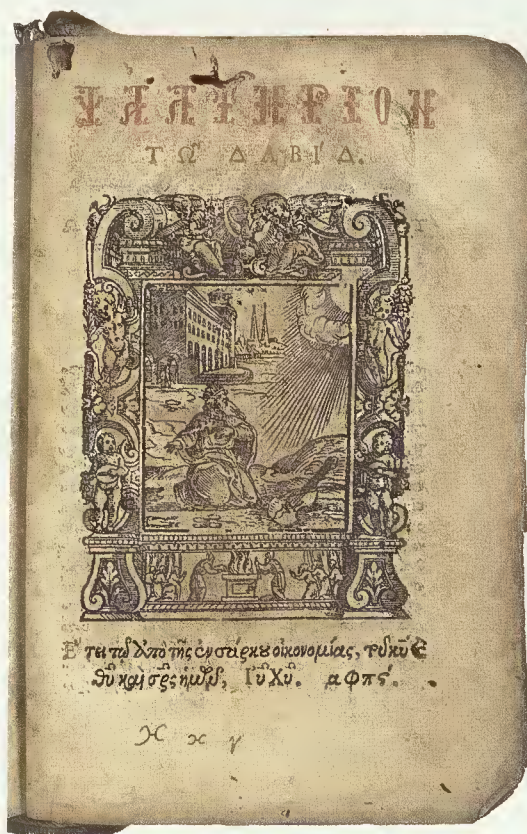 ΨΑΛΤΗΡΙΟΝ
ΤΩ͂ ΔΑΒΙ´Δ.
Ἔτει τῷ ἀπὸ τῆς ἐνσάρκου οἰκονομίας, τοῦ κυ῀ ϗ
θυ῀ καὶ σρ῀ς ἡμῶν, Ιυ῀ Χυ῀. αφπϛ´.